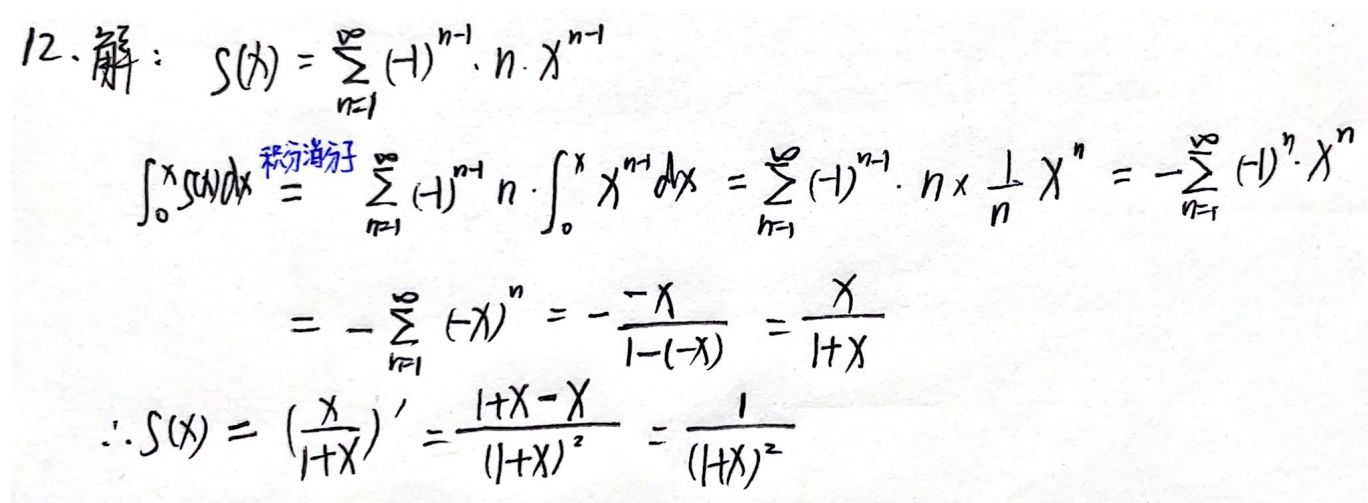 12. 解： S(x) = ∑_{n=1}^{∞} (-1)^{n-1} · n · x^{n-1}
∫_0^x S(x)dx 积分消分子 = ∑_{n=1}^{∞} (-1)^{n-1} n · ∫_0^x x^{n-1} dx = ∑_{n=1}^{∞} (-1)^{n-1} · n × 1/n x^n = -∑_{n=1}^{∞} (-1)^n · x^n
= -∑_{n=1}^{∞} (-x)^n = - (-x)/(1-(-x)) = x/(1+x)
∴ S(x) = (x/(1+x))' = (1+x-x)/(1+x)^2 = 1/(1+x)^2